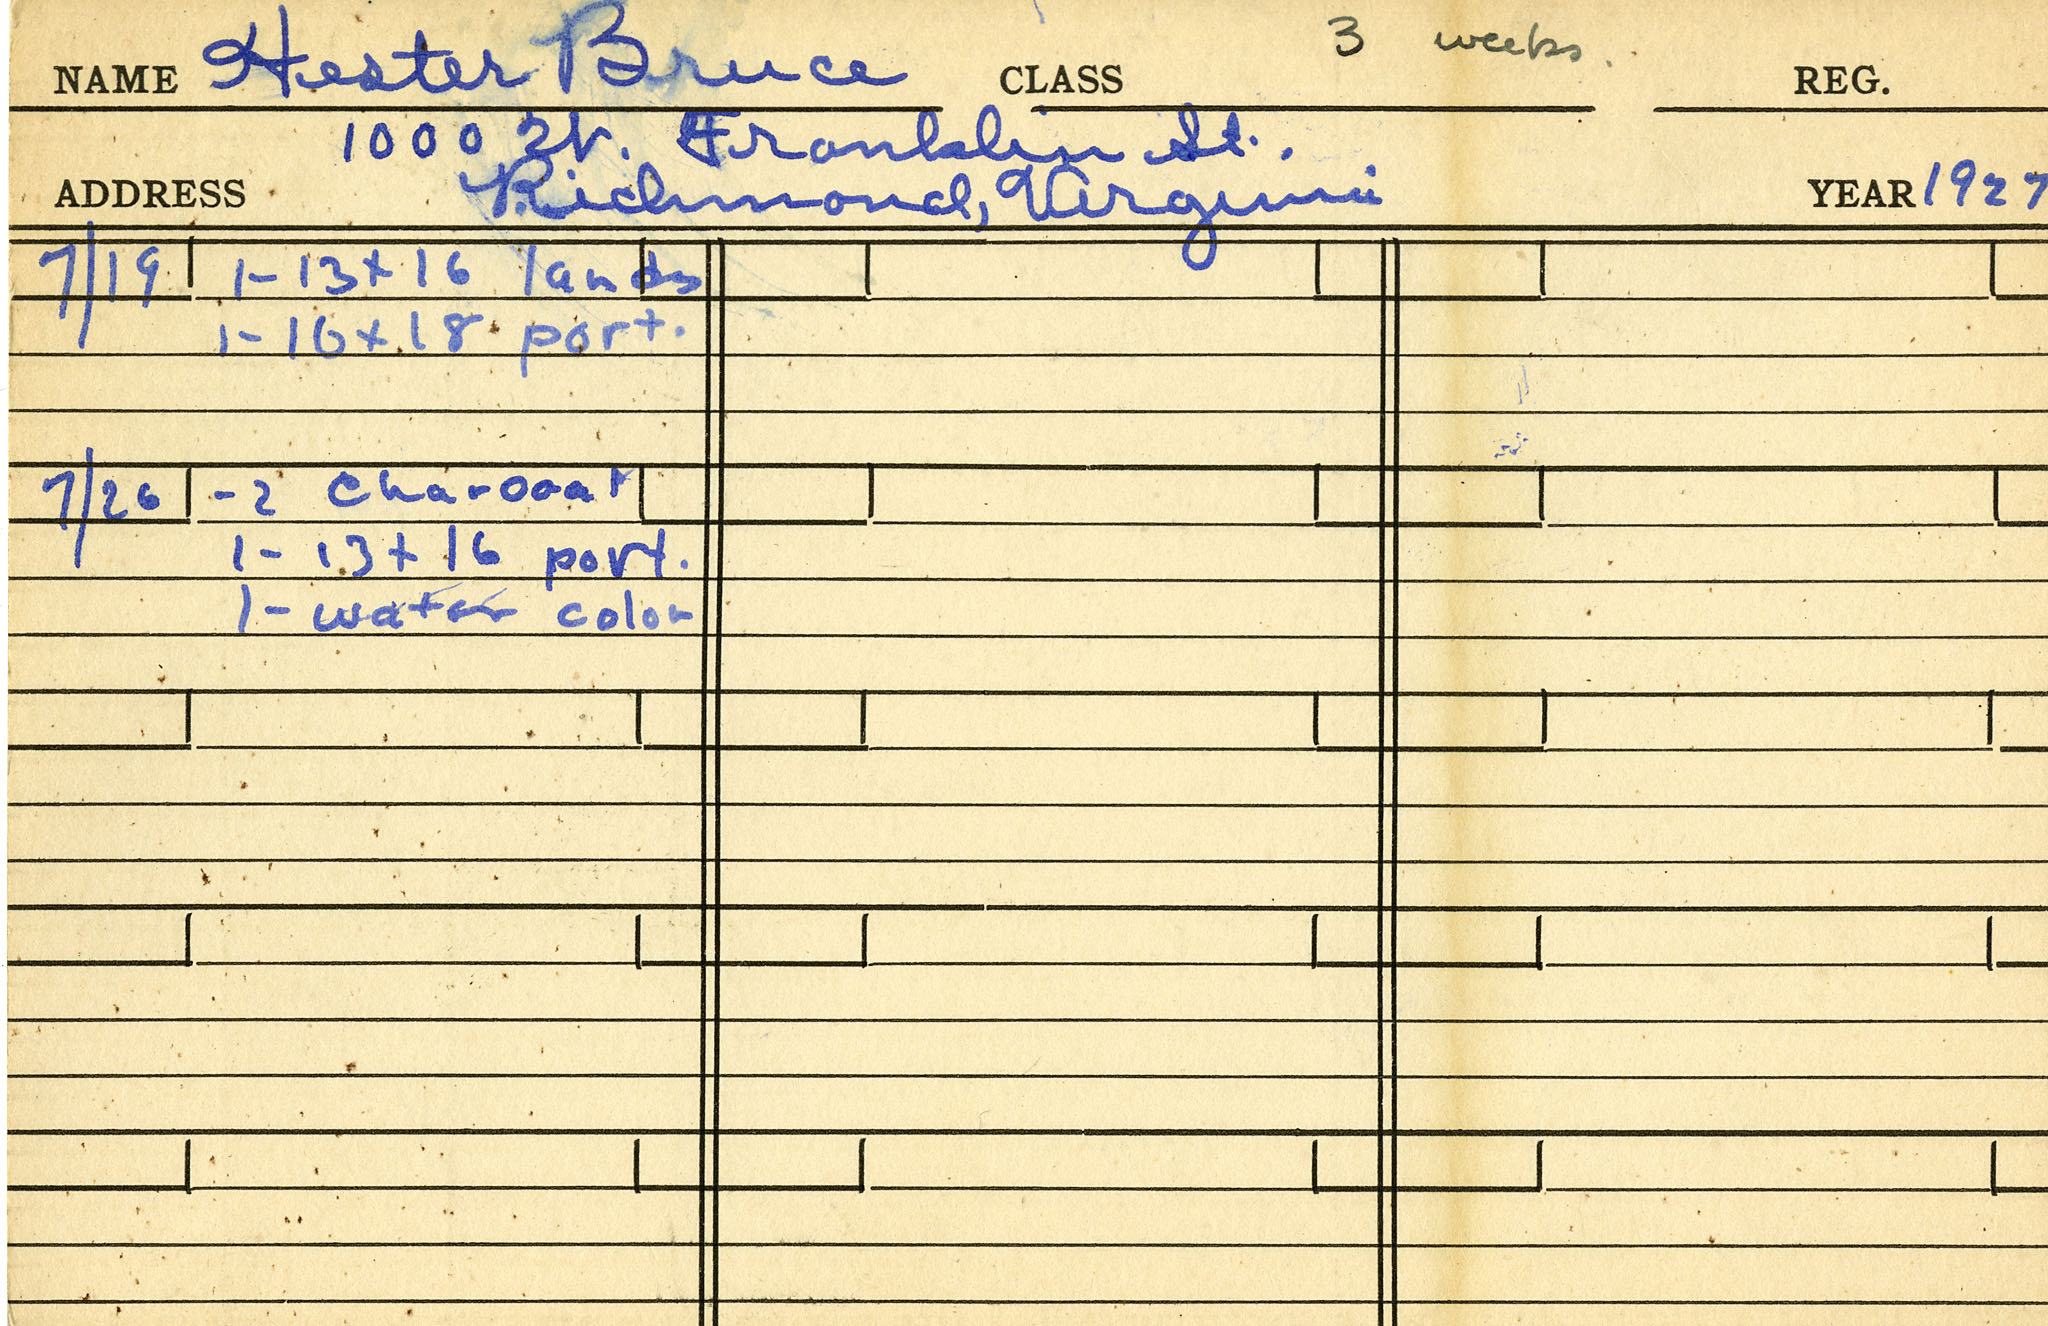 NAME Hester Bruce CLASS 3 weeks. REG.
1000 W. Franklin St.,
ADDRESS Richmond, Virginia YEAR 1927
7/19 1-13x16 lands
1-16x18 port.
7/26 -2 Charcoal
1-13x16 port.
1-water color